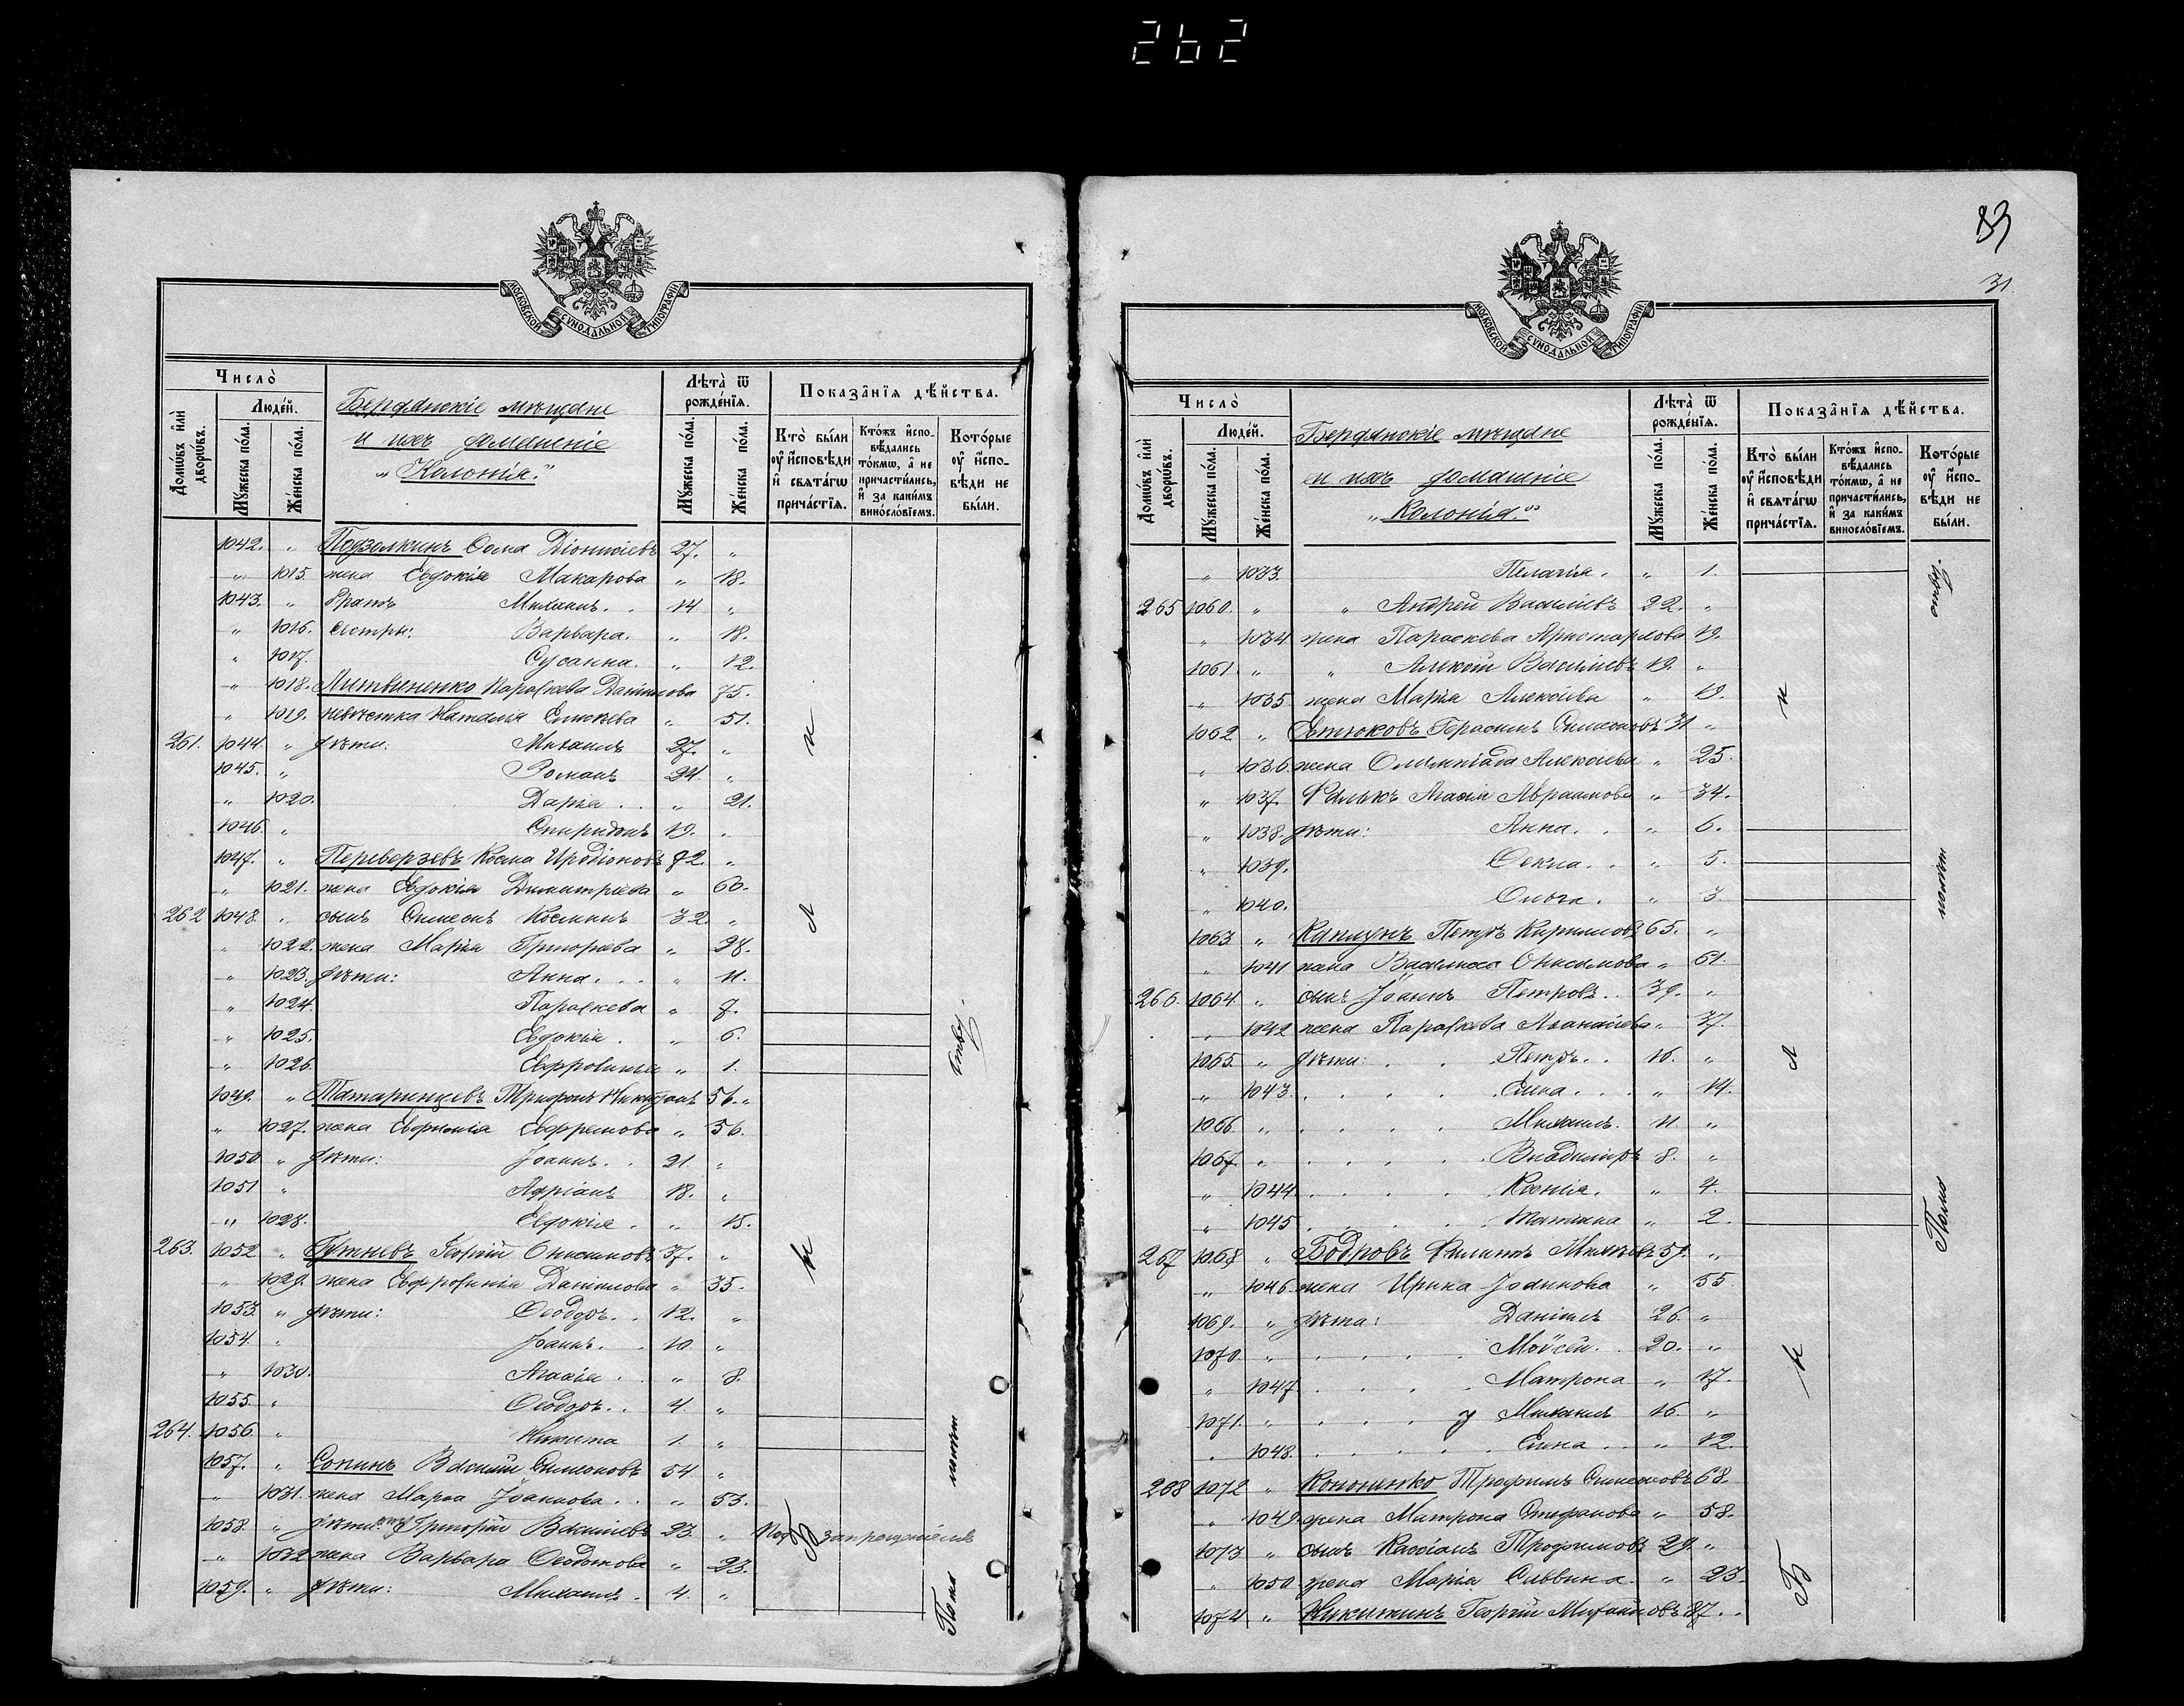 262
МОСКОВСКОЙ СУНОДАЛЬНОЙ ТИПОГРАФІИ.
Число̀
Домѡ́въ и҆лѝ дворѡ́въ.
Люде́й.
Мꙋ́жеска по́ла.
Же́нска по́ла.
Бердянскіе мѣщане
и ихъ домашніе
„Колонія."
Лѣта̀ ѿ рожде́нїѧ.
Мꙋ́жеска по́ла.
Же́нска по́ла.
Показа̑нїѧ дѣ́йства.
Кто̀ бы́ли оу҆ и҆сповѣди и҆ свѧта́гѡ прича́стїѧ.
Кто́жъ и҆спо-вѣдались то́кмѡ, а҆ не причасти́лись, и҆ за каки́мъ виносло́вїемъ.
Кото́рые оу҆ и҆спо-вѣди не бы́ли.
1042. „ Подзолкинъ Ѳома Діонисіевъ 27. „
„ 1015. жена Евдокія Макарова „ 18.
1043. „ братъ Михаилъ. . 14 „
„ 1016. сестры: Варвара. „ 18.
„ 1017. Сусанна. „ 12.
„ 1018. Литвиненко Параскева Даніилова 75.
„ 1019. невѣстка Наталія „ 51.
261. 1044 „ дѣти: Михаилъ 27. „
1045. „ Романъ 24. „
„ 1020. Дарія . . „ 21.
1046. „ Спиридонъ 19. „
1047. „ Переверзевъ Косма Иродіоновъ 72. „
„ 1021. жена Евдокія Димитріева „ 60.
262 1048. „ сынъ Симеонъ Косминъ 32. „
„ 1022. жена Марія Григоріева „ 28.
„ 1023. дѣти: Анна. . . „ 11.
„ 1024. Параскева „ 7.
„ 1025. Евдокія . „ 6.
„ 1026. Евфросинія „ 1.
1049. „ Татаринцевъ Трифонъ 56. „
„ 1027. жена Евфимія Евфремова „ 56.
1050. „ дѣти: Іоаннъ. . 21. „
1051 „ Адріанъ 18. „
„ 1028. Евдокія . „ 15.
263. 1052 „ Гутневъ Георгій Онисимовъ 37. „
„ 1029. жена Евфросинія Даніилова „ 35.
1053. „ дѣти: Ѳеодоръ. . 12. „
1054. „ Іоаннъ. . 10 „
„ 1030. Агаѳія . . „ 8.
1055. „ Ѳеодоръ. . 4. „
264. 1056. „ Никита 1. „
1057. „ Сопинъ Василій Симеоновъ 54 „
„ 1031. жена Марѳа Іоаннова. . „ 53.
1058. „ дѣти: Григорій Василіевъ 23. „ Под запрещеніемъ
„ 1032 жена Варвара „ 23.
1059. „ дѣти: Михаилъ . 4. „
83
31
МОСКОВСКОЙ СУНОДАЛЬНОЙ ТИПОГРАФІИ.
Число̀
Домѡ́въ и҆лѝ дворѡ́въ.
Люде́й.
Мꙋ́жеска по́ла.
Же́нска по́ла.
Бердянскіе мѣщане
и ихъ домашніе
„Колонія."
Лѣта̀ ѿ рожде́нїѧ.
Мꙋ́жеска по́ла.
Же́нска по́ла.
Показа̑нїѧ дѣ́йства.
Кто̀ бы́ли оу҆ и҆сповѣди и҆ свѧта́гѡ прича́стїѧ.
Кто́жъ и҆спо-вѣдались то́кмѡ, а҆ не причасти́лись, и҆ за каки́мъ виносло́вїемъ.
Кото́рые оу҆ и҆спо-вѣди не бы́ли.
„ 1033. Пелагія. „ 1.
265 1060. „ „ Андрей Василіевъ 22. „
„ 1034 жена Параскева Аристархова 19.
1061. „ „ Алексій Василіевъ 19. „
„ 1035. жена Марія Алексіева „ 19.
1062 „ Евтюковъ Герасимъ Симеоновъ 31 „
„ 1036. жена Олимпіада Алексіева „ 25.
„ 1037. Фалькъ Агаѳія Авраамова „ 34.
„ 1038. дѣти: Анна. . „ 6.
„ 1039. Ѳекла. . „ 5.
„ 1040. Ольга. „ 3.
1063 „ Каплунъ Петръ Кирилловъ 65. „
„ 1041 жена Василиса Онисимова „ 61.
266. 1064. „ сынъ Іоаннъ Петровъ. . 39. „
„ 1042 жена Параскева Аѳанасіева „ 37.
1065. „ дѣти: . . Петръ. . 16. „
„ 1043. . . . . Елена. . . „ 14.
1066. „ . . . . Михаилъ. 11 „
1067. „ . . . . Владиміръ 8. „
„ 1044. . . . . Ксенія. „ 4.
„ 1045 . . . . Татіана „ 2.
267 1068 „ Бодровъ Филиппъ 59. „
„ 1046. жена Ирина Іоаннова „ 55.
1069. „ дѣти: Даніилъ 26. „
1070. „ . . . . Моѵсей. . 20. „
„ 1047 . . . . Матрона „ 17.
1071. „ . . . . Михаилъ 16. „
„ 1048. . . . . Елена . . „ 12.
268 1072 „ Кононенко Трофимъ Симеоновъ 68.
„ 1049. жена Матрона Стефанова „ 58.
1073 „ сынъ Кассіанъ Трофимовъ 29. „
„ 1050. жена Марія Саввина. „ 23.
1074 „ Никитинъ Георгій Михайловъ 37. „